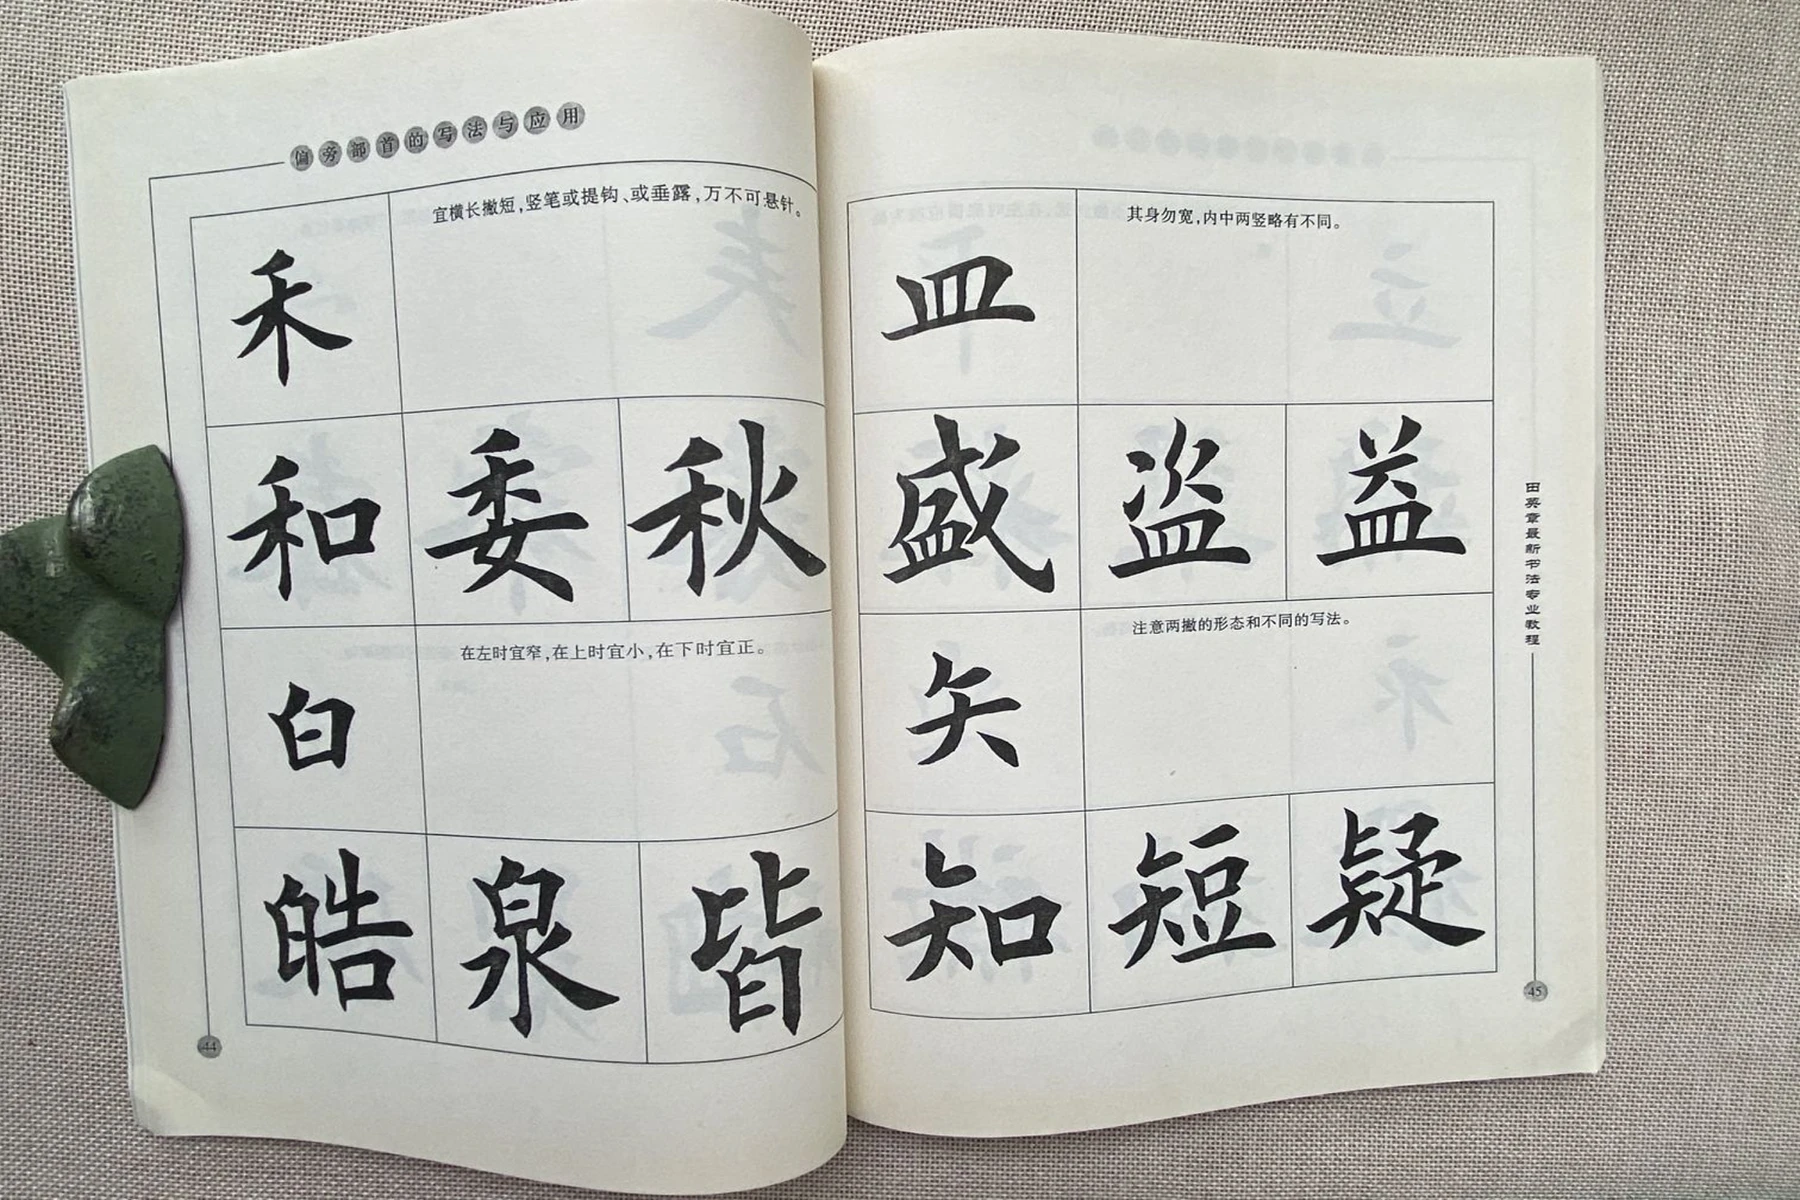 偏旁部首的写法与应用
宜横长撇短，竖笔或提钩、或垂露，万不可悬针。
禾
和 委 秋
在左时宜窄，在上时宜小，在下时宜正。
白
皓 泉 皆
44
其身勿宽，内中两竖略有不同。
皿
盛 盗 益
注意两撇的形态和不同的写法。
矢
知 短 疑
田英章最新书法专业教程
45